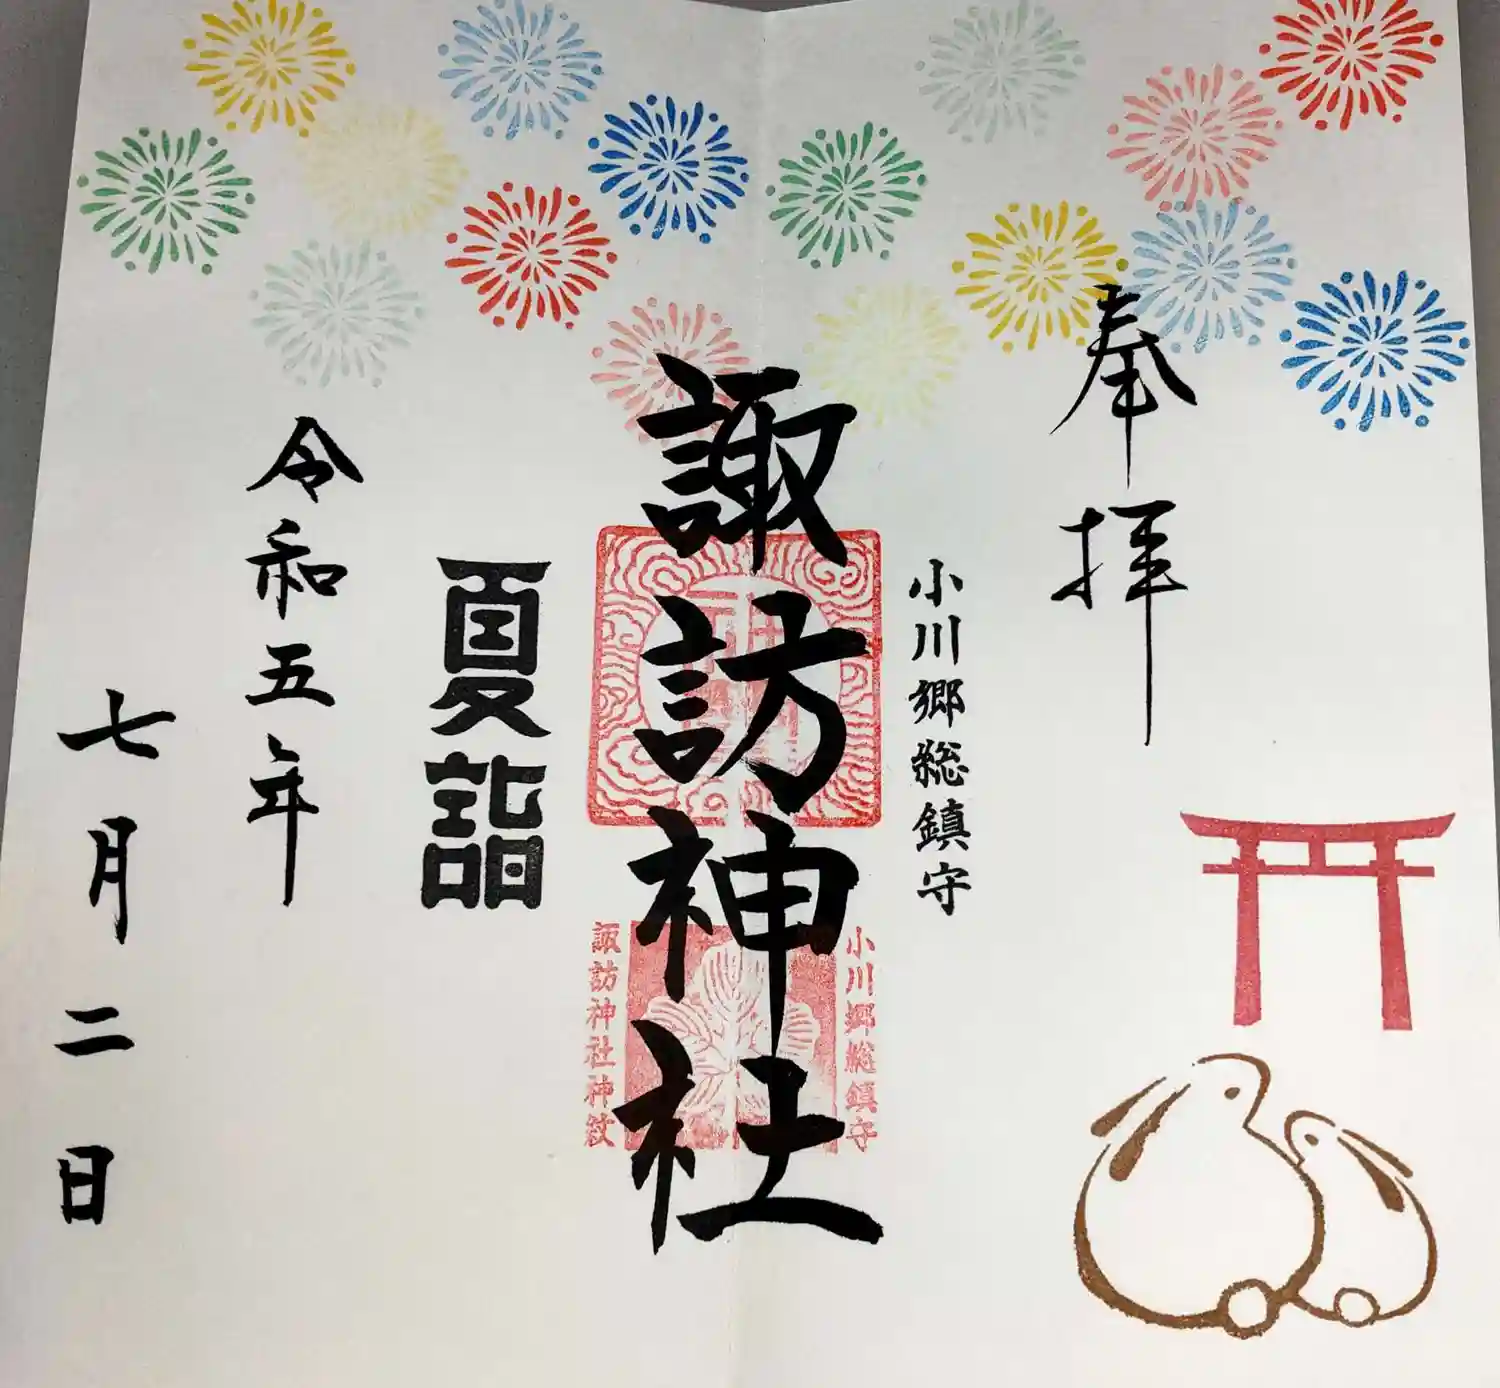 奉拝
小川郷総鎮守
諏訪神社
小川郷総鎮守
諏訪神社神紋
夏詣
令和五年
七月二日